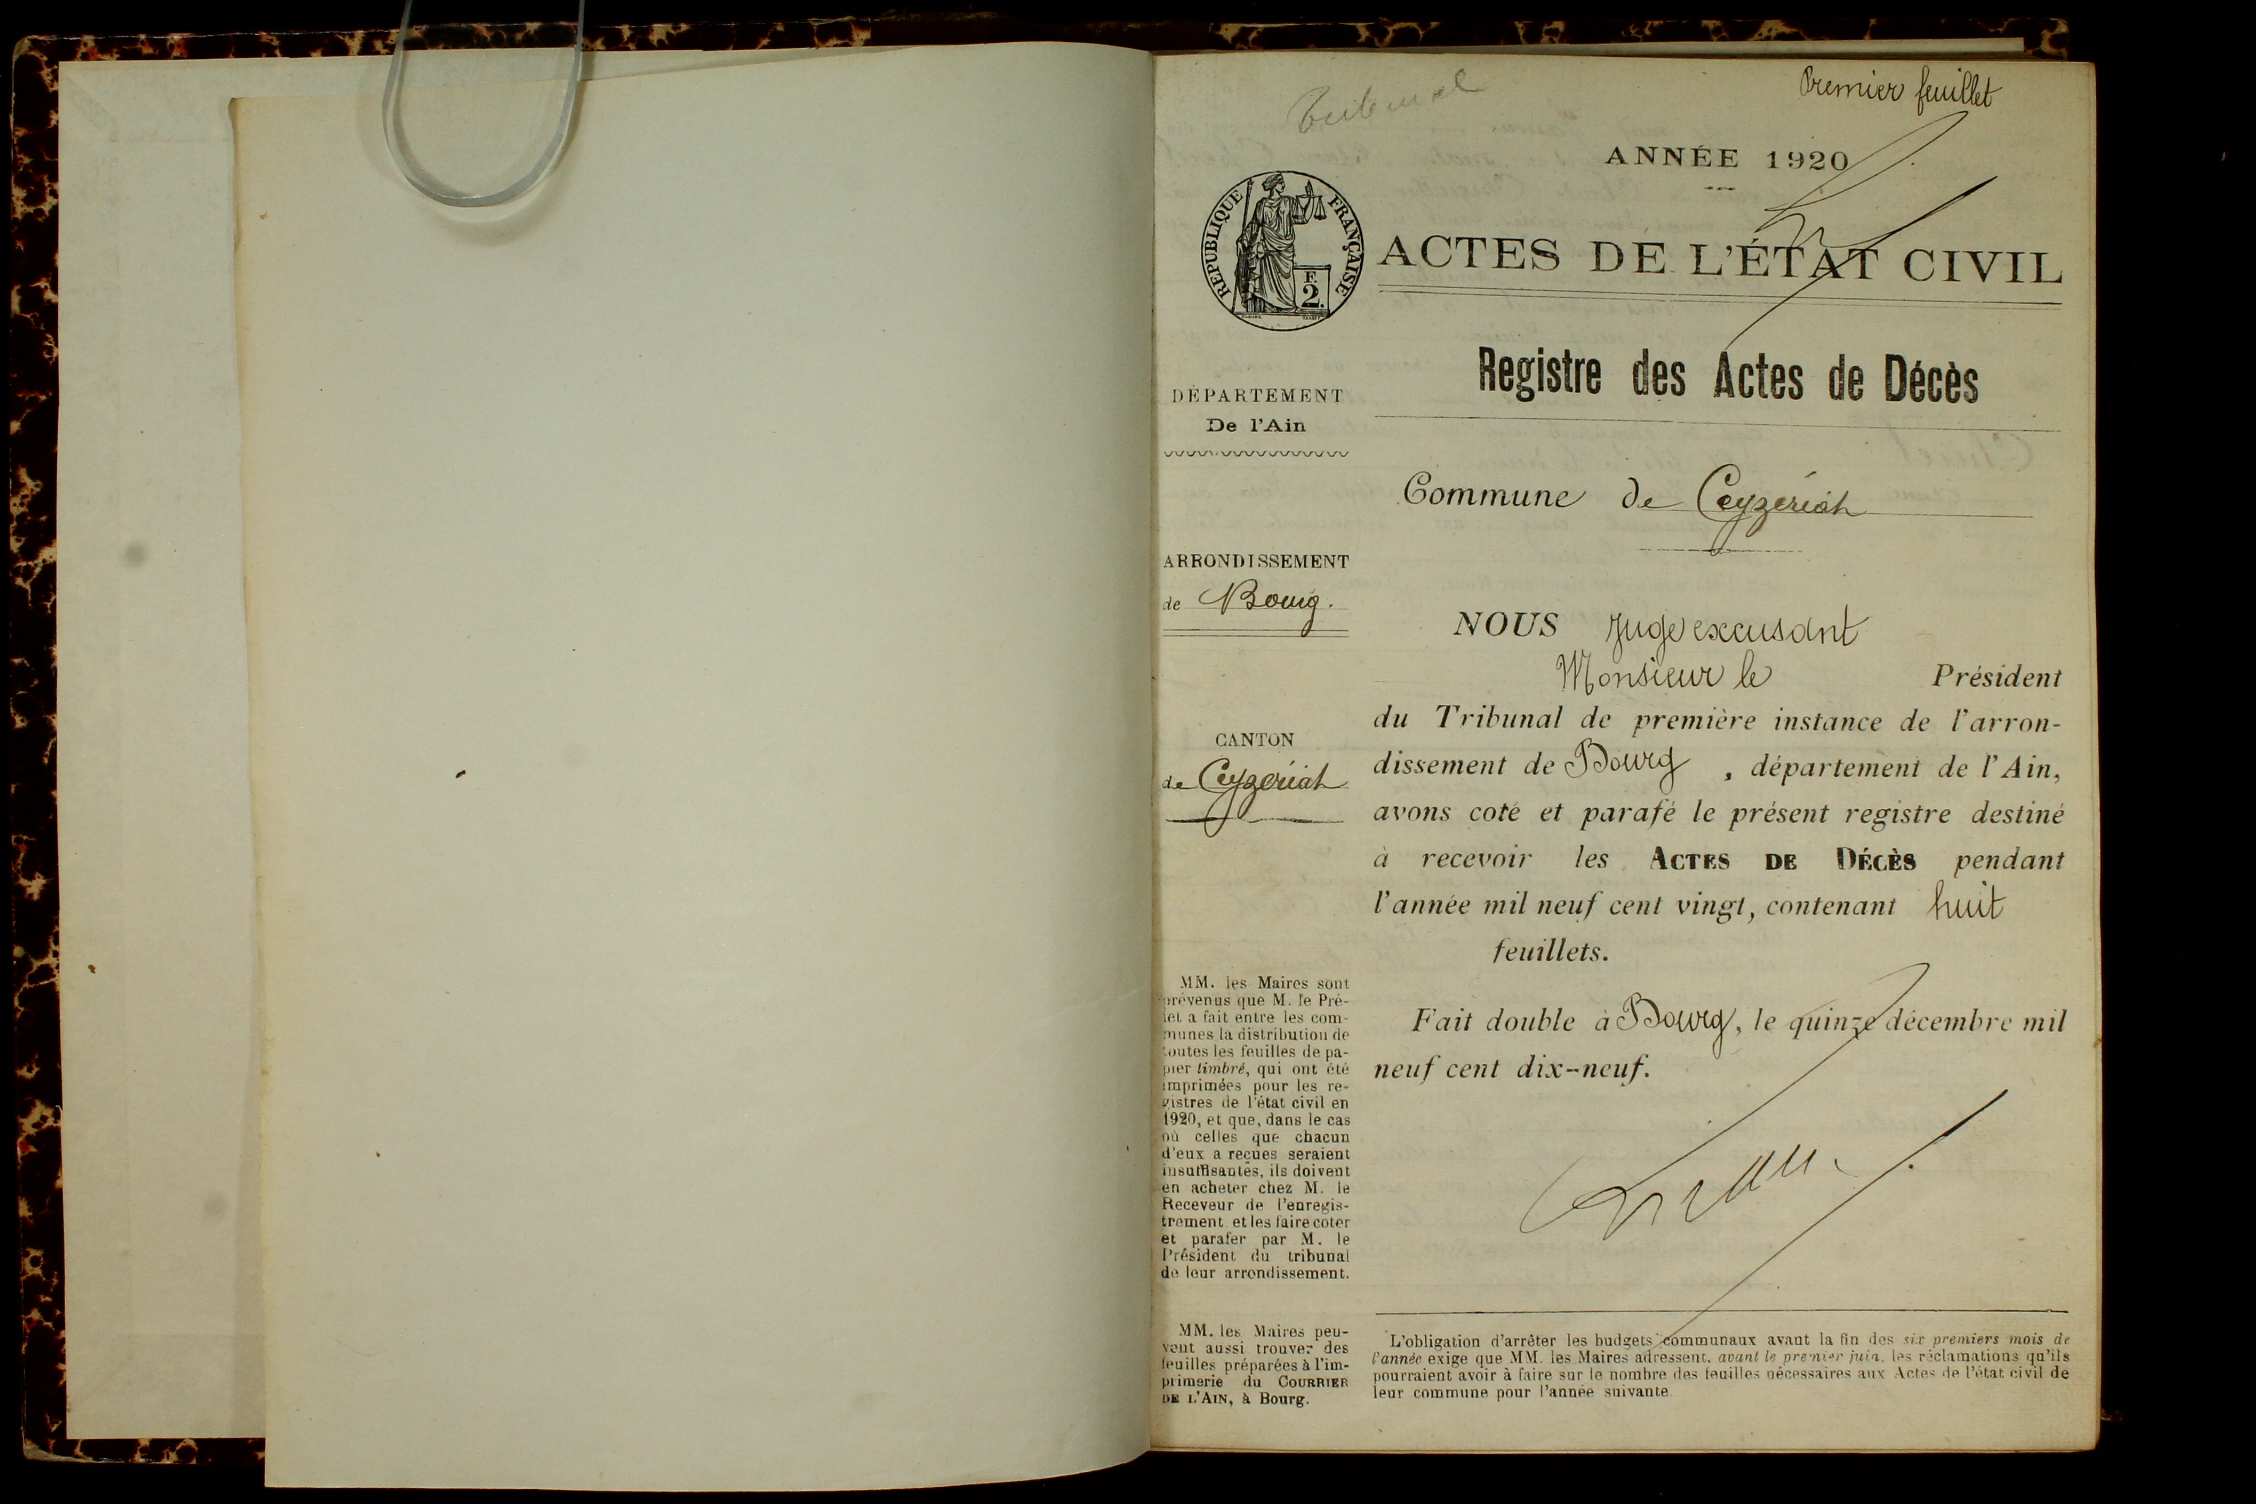 Tribunal
Premier feuillet
ANNÉE 1920
RÉPUBLIQUE FRANÇAISE
F.
2.
ACTES DE L'ÉTAT CIVIL
Registre des Actes de Décès
DÉPARTEMENT
De l'Ain
Commune de Ceyzériat
ARRONDISSEMENT
de Bourg.
CANTON
de Ceyzériat
NOUS Juge excusant
Monsieur le Président
du Tribunal de première instance de l'arron-
dissement de Bourg, département de l'Ain,
avons coté et parafé le présent registre destiné
à recevoir les ACTES DE DÉCÈS pendant
l'année mil neuf cent vingt, contenant huit
feuillets.
Fait double à Bourg, le quinze décembre mil
neuf cent dix-neuf.
MM. les Maires sont
prévenus que M. le Pré-
fet a fait entre les com-
munes la distribution de
toutes les feuilles de pa-
pier timbré, qui ont été
imprimées pour les re-
gistres de l'état civil en
1920, et que, dans le cas
où celles que chacun
d'eux a reçues seraient
insuffisantes, ils doivent
en acheter chez M. le
Receveur de l'enregis-
trement et les faire coter
et parafer par M. le
Président du tribunal
de leur arrondissement.
MM. les Maires peu-
vent aussi trouver des
feuilles préparées à l'im-
primerie du COURRIER
DE L'AIN, à Bourg.
L'obligation d'arrêter les budgets communaux avant la fin des six premiers mois de
l'année exige que MM. les Maires adressent, avant le premier juin, les réclamations qu'ils
pourraient avoir à faire sur le nombre des feuilles nécessaires aux Actes de l'état civil de
leur commune pour l'année suivante